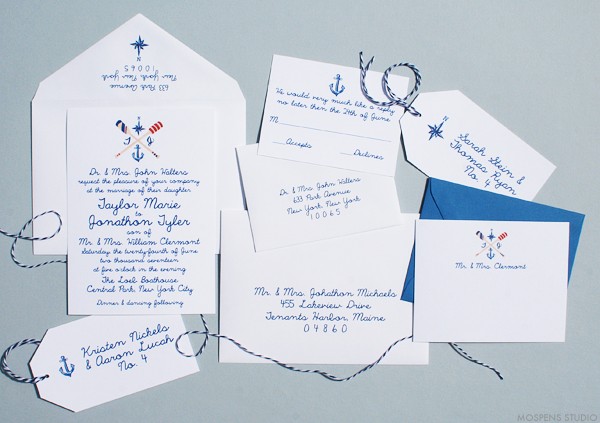 N
633 Park Avenue
New York New York
10065
Dr. & Mrs. John Walters
request the pleasure of your company
at the marriage of their daughter
Taylor Marie
to
Jonathon Tyler
son of
Mr. & Mrs. William Clermont
Saturday the twenty-fourth of June
two thousand seventeen
at five o'clock in the evening
The Loeb Boathouse
Central Park, New York City
Dinner & dancing following
Kristen Nichels
& Aaron Lucah
No. 4
We would very much like a reply
no later then the 24th of June
M
Accepts
Declines
Dr. & Mrs. John Walters
633 Park Avenue
New York, New York
10065
Mr. & Mrs. Johathon Michaels
455 Lakeview Drive
Tenants Harbor, Maine
04860
N
Sarah Stein &
Thomas Ryan
No. 4
T J
Mr. & Mrs. Clermont
MOSPENS STUDIO